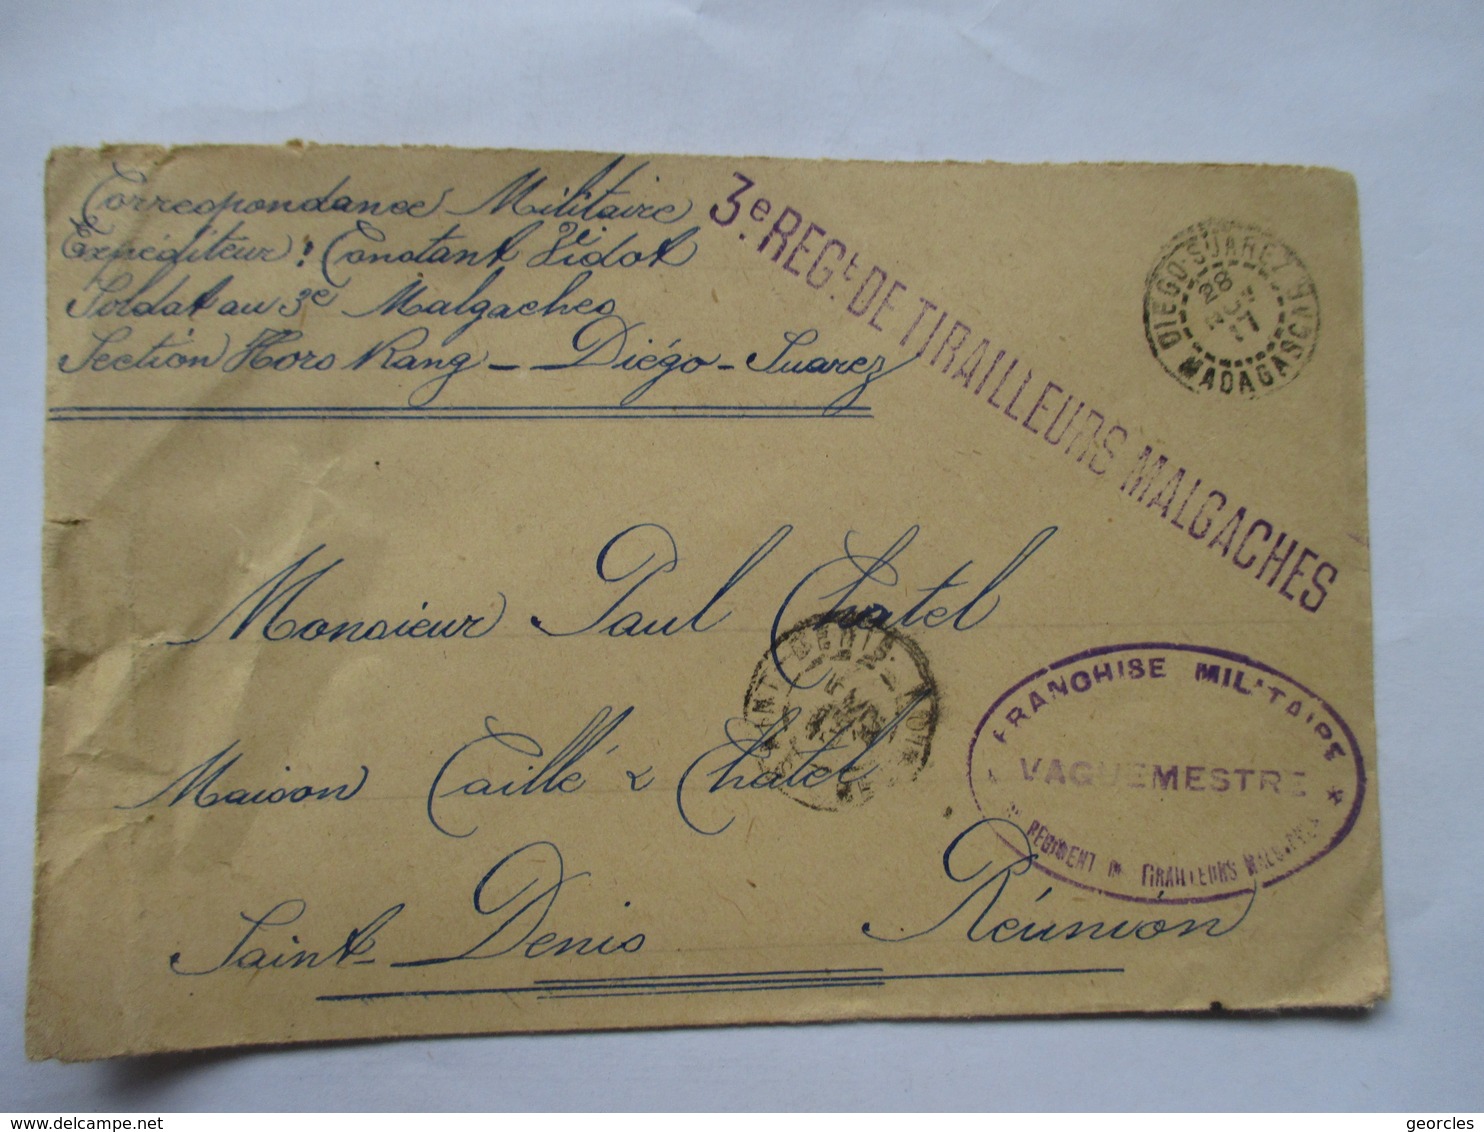 Correspondance Militaire
Expéditeur : Constant Vidot
Soldat au 3e Malgaches
Section Hors Rang - Diégo-Suarez
3e REGt DE TIRAILLEURS MALGACHES
DIEGO-SUAREZ
MADAGASCAR
Monsieur Paul Chatel
Maison Caillé & Chatel
Saint-Denis Réunion
FRANCHISE MILITAIRE
VAGUEMESTRE *
REGIMENT DE TIRAILLEURS MALGACHES
delcampe.net
georcles